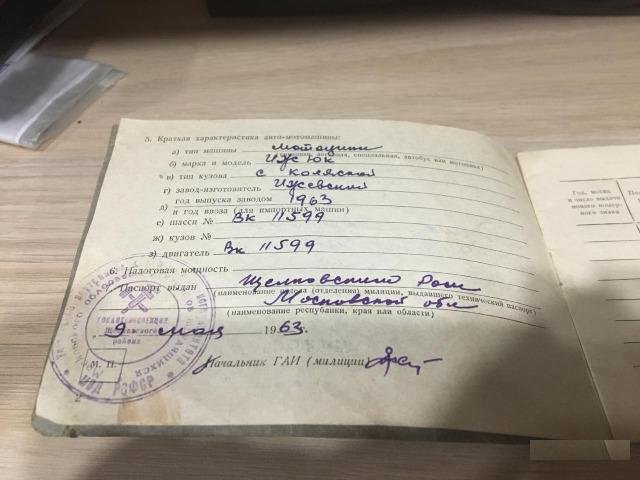 5. Краткая характеристика авто-мотомашины:
а) тип машины мотоцикл
(грузовая, легковая, специальная, автобус или мотоцикл)
б) марка и модель ИЖ ЮК
в) тип кузова с коляской
г) завод-изготовитель Ижевский
д) год выпуска заводом 1963
и год ввоза (для импортных машин)
е) шасси № Вк 11599
ж) кузов №
з) двигатель Вк 11599
6. Налоговая мощность
Паспорт выдан Щелковским
(наименование отдела (отделения) милиции, выдавшего технический паспорт)
Московской обл
(наименование республики, края или области)
9 мая 1963 г.
М. П.
Начальник ГАИ (милиции)
ГОСАВТОИНСПЕКЦИЯ
района
РСФСР
Год, месяц
и число выдачи
нового номер-
ного знака